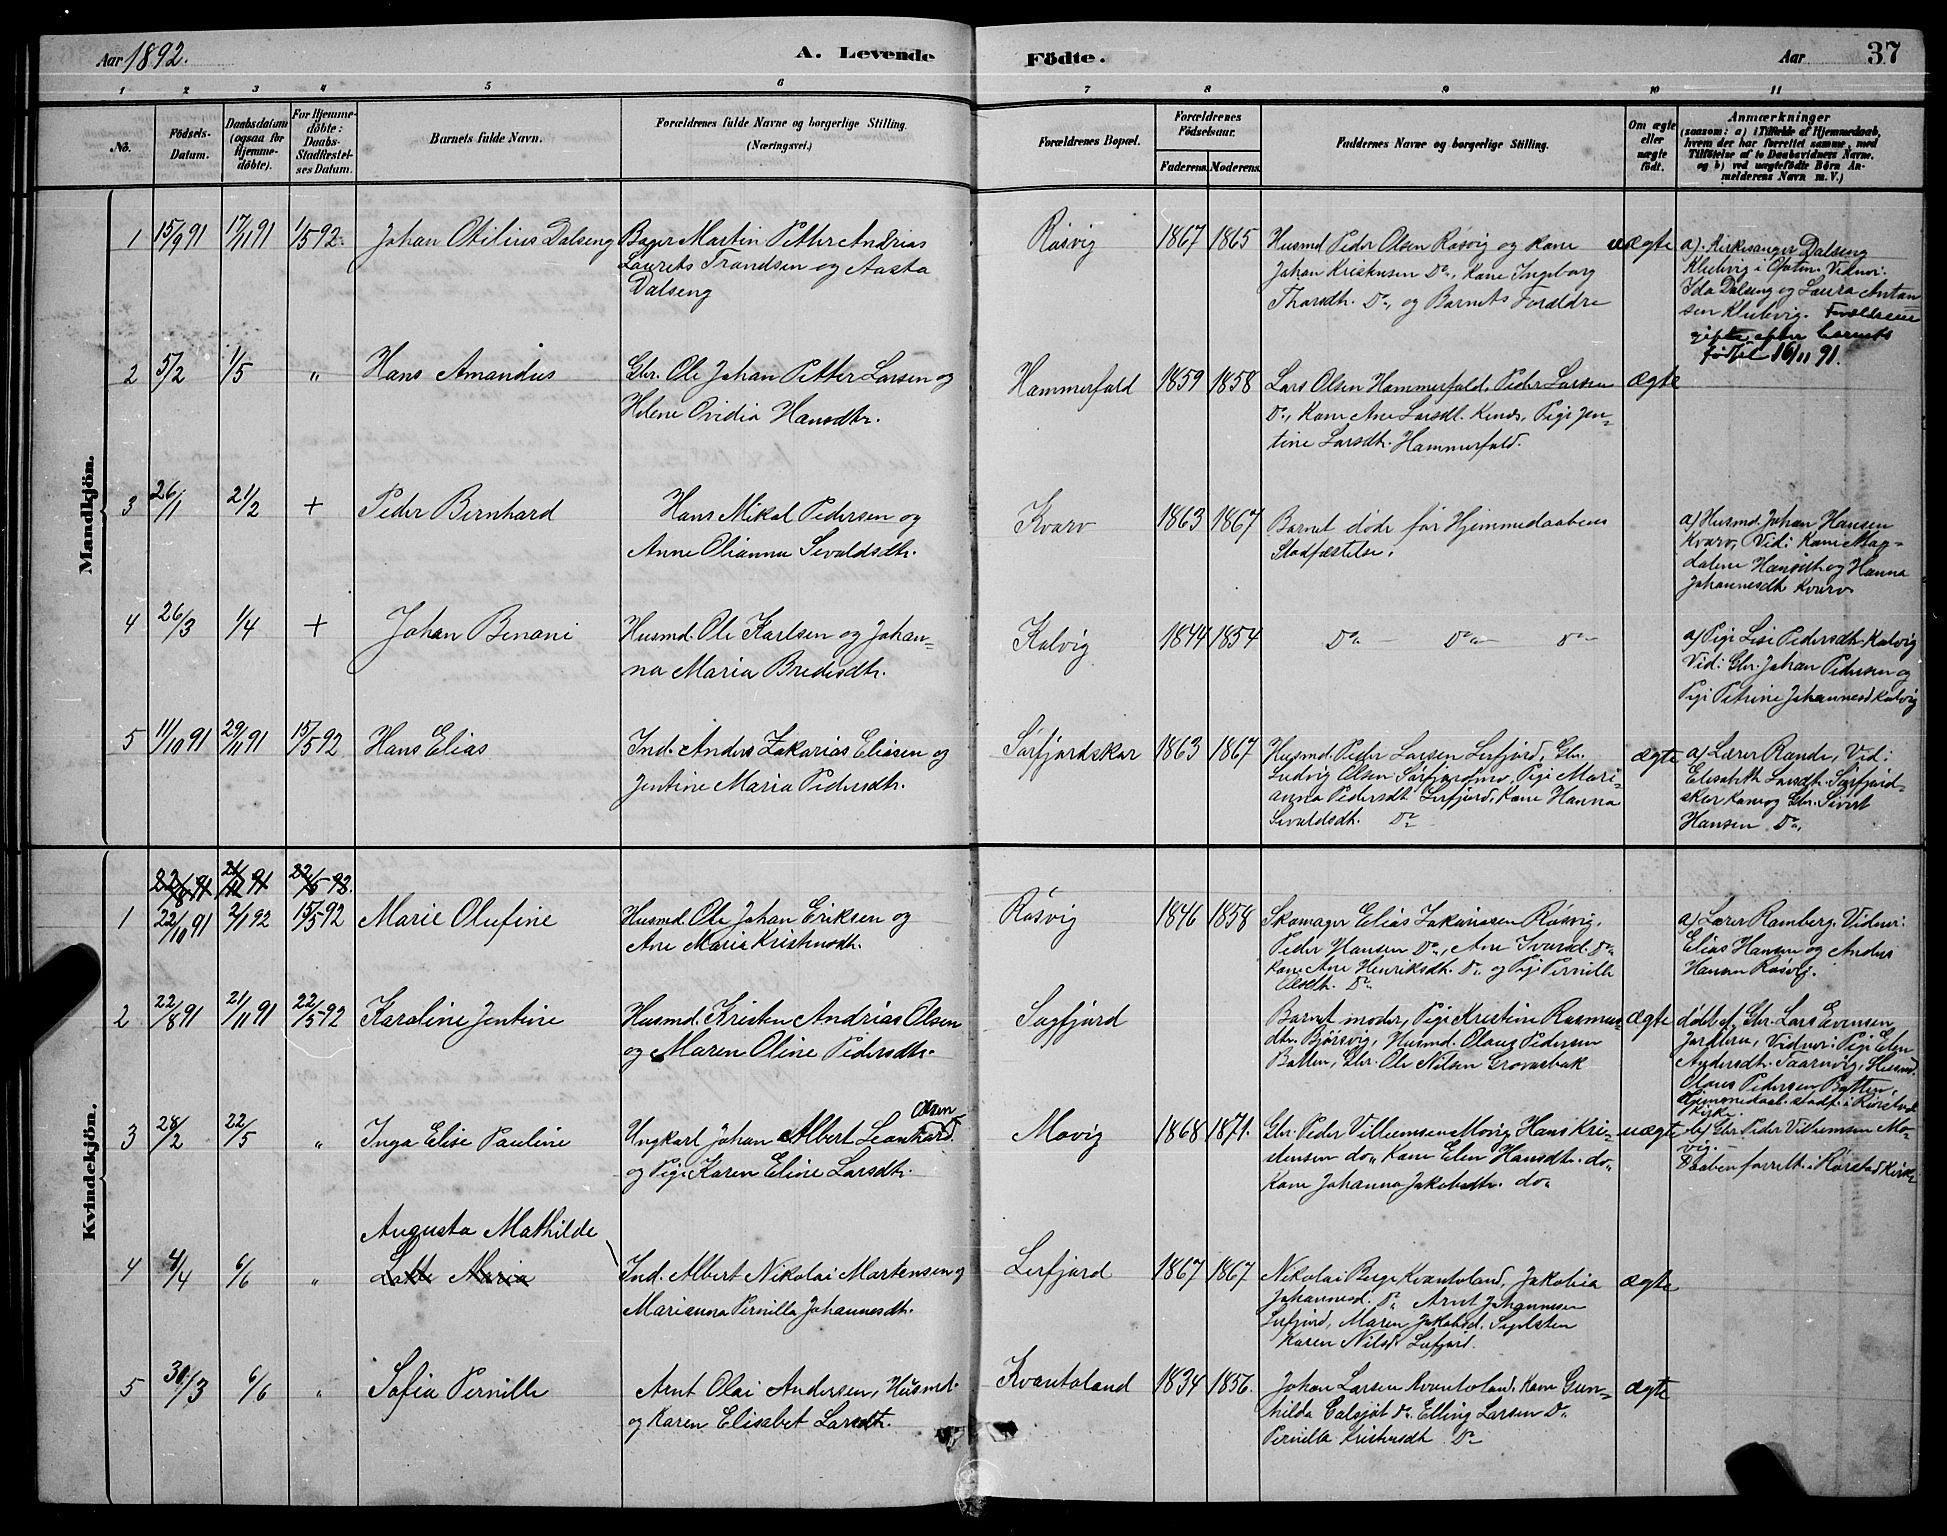 Aar 1892.
A. Levende
Födte.
Aar
37
1 2 3 4 5 6 7 8 9 10 11
No.
Födsels-
Datum.
Daabsdatum
(ogsaa for
Hjemme-
döbte).
For Hjemme-
döbte:
Daabs-
Stadfæstel-
ses Datum.
Barnets fulde Navn.
Forældrenes fulde Navne og borgerlige Stilling.
(Næringsvei.)
Forældrenes Bopæl.
Forældrenes
Födselsaar.
Faderens. Moderens.
Faddernes Navne og borgerlige Stilling.
Om ægte
eller
uægte
födt.
Anmærkninger
(saasom: a) i Tilfælde af Hjemmedaab,
hvem der har forrettet samme, med
Tilföielse af to Daabsvidners Navne,
og b) ved uægtefödte Börn An-
melderens Navn m. V.)
Mandkjön.
1 15/9 91 17/11 91 1/5 92. Johan Otilius Dalseng
Bager Martin Petter Andrias
Laurets Trondsen og Aasta
Dalseng
Røsvig 1867 1865
Husmd Peder Olsen Røsvig og Kone
Johan Kristensen Do, Kone Ingeborg
Thorsdtr. Do, og Barnets Forældre
uægte
a). Kirkesanger Dalseng
Klubvig i Ofoten. Vidner:
Ida Dalseng og Laura Antan
sen Klubvig. Forældrene
gifte efter barnets
fødsel 16/11 91.
2 5/2 1/5 " Hans Amandus
Gbr. Ole Johan Petter Larsen og
Helene Ovidia Hansdtr.
Hammerfald 1859 1858
Lars Olsen Hammerfald. Peder Larsen
Do, Kone Ane Larsdt. Kines, Pige Jen-
tine Larsdtr. Hammerfald.
ægte
3 26/1 21/2 + Peder Bernhard
Hans Mikal Pedersen og
Anne Olianna Sevaldsdtr.
Kvarv 1863 1867
Barnet døde før Hjemmedaabens
Stadfæstelse.
a) Husmd. Johan Hansen
Kvarv, Vid: Kone Mag-
dalene Hansdtr og Hanna
Johannesdtr Kvarv
4 26/3 1/4 + Johan Benoni
Husmd. Ole Karlsen og Johan-
na Maria Bredesdtr.
Kalvig 1844 1854
Do — Do — Do —
a) Pige Lise Pedersdtr. Kalvig
Vid: Gbr. Johan Pedersen og
Pige Petrine Johannesd Kalvig
5 11/10 91 29/11 91 15/5 92 Hans Elias
Ind. Anders Zakarias Eliasen og
Jentine Maria Pedersdtr.
Sørfjordskar 1863 1867
Husmd. Peder Larsen Lerfjord, Gbr.
Ludvig Olsen Sørfjordmo, Pige Mari-
anna Pedersdt Lerfjord, Kone Hanna
Sevaldsdt. Do
ægte
a) Lærer Rande, Vid:
Elisabeth Larsdtr. Sørfjord-
skar Kone og Gbr. Sivert
Hansen Do,
Kvindekjön.
22/8 91 21/11 91 22/5 92.
1 22/10 91 2/1 92 15/5 92 Marie Olufine
Husmd. Ole Johan Eriksen og
Ane Maria Kristensdtr.
Røsvig 1846 1858
Skomager Elias Zakariasen Røsvig.
Peder Hansen Do, Ane Ivarsd. Do
Kone Ane Henriksdtr. Do og Pige Pernille
Olsdtr. Do
a) Lærer Ramberg. Vidner:
Elias Hansen og Anders
Hansen Røsvig.
2 22/8 91 21/11 91 22/5 92 Karoline Jentine
Husmd. Kristen Andrias Olsen
og Maren Oline Pedersdtr.
Sagfjord
Barnets moder, Pige Kristine Rasmus-
dtr. Bjørsvig, Husmd. Olaus Pedersen
Botten, Gbr. Ole Nilsen Grovasbak
ægte
døbt af Gbr. Lars Evensen
Jordbru, Vidner: Pige Elen
Andersdtr. Taarnvig, Husmd.
Olaus Pedersen Botten.
Hjemmedaab. stadf. i Rørstad
Kirke.
3 28/2 22/5 " Inga Elise Pauline
Ungkarl Johan Albert Leonhard Olsen
og Pige Karen Eline Larsdtr.
Movig 1868 1871.
Gbr. Peder Villumsen Movig, Hans Kri-
stensen do, Kone Elen Hansdtr. do,
Kone Johanna Jakobsdtr. do
uægte
b) Gbr. Peder Villumsen Mo-
vig.
Daaben forrett. i Rørstad Kirke
4 4/4 6/6 " Augusta Mathilde
Lotte Maria
Ind. Albert Nikolai Martensen og
Marianna Pernilla Johannesdtr.
Lerfjord 1867 1867
Nikolai Berge Kvantoland, Jakobia
Johannesd. Do Arnt Johannesen
Lerfjord, Maren Jakobsd. Siplsten
Karen Nilsd. Lerfjord.
ægte
5 30/3 6/6 " Sofia Pernille
Arnt Olai Andersen, Husmd.
og Karen Elisabet Larsdtr.
Kvantoland 1834 1856.
Johan Larsen Kvantoland, Kone Gun-
hilda Do. Elling Larsen Do
Pernilla Kristensdt Do
ægte